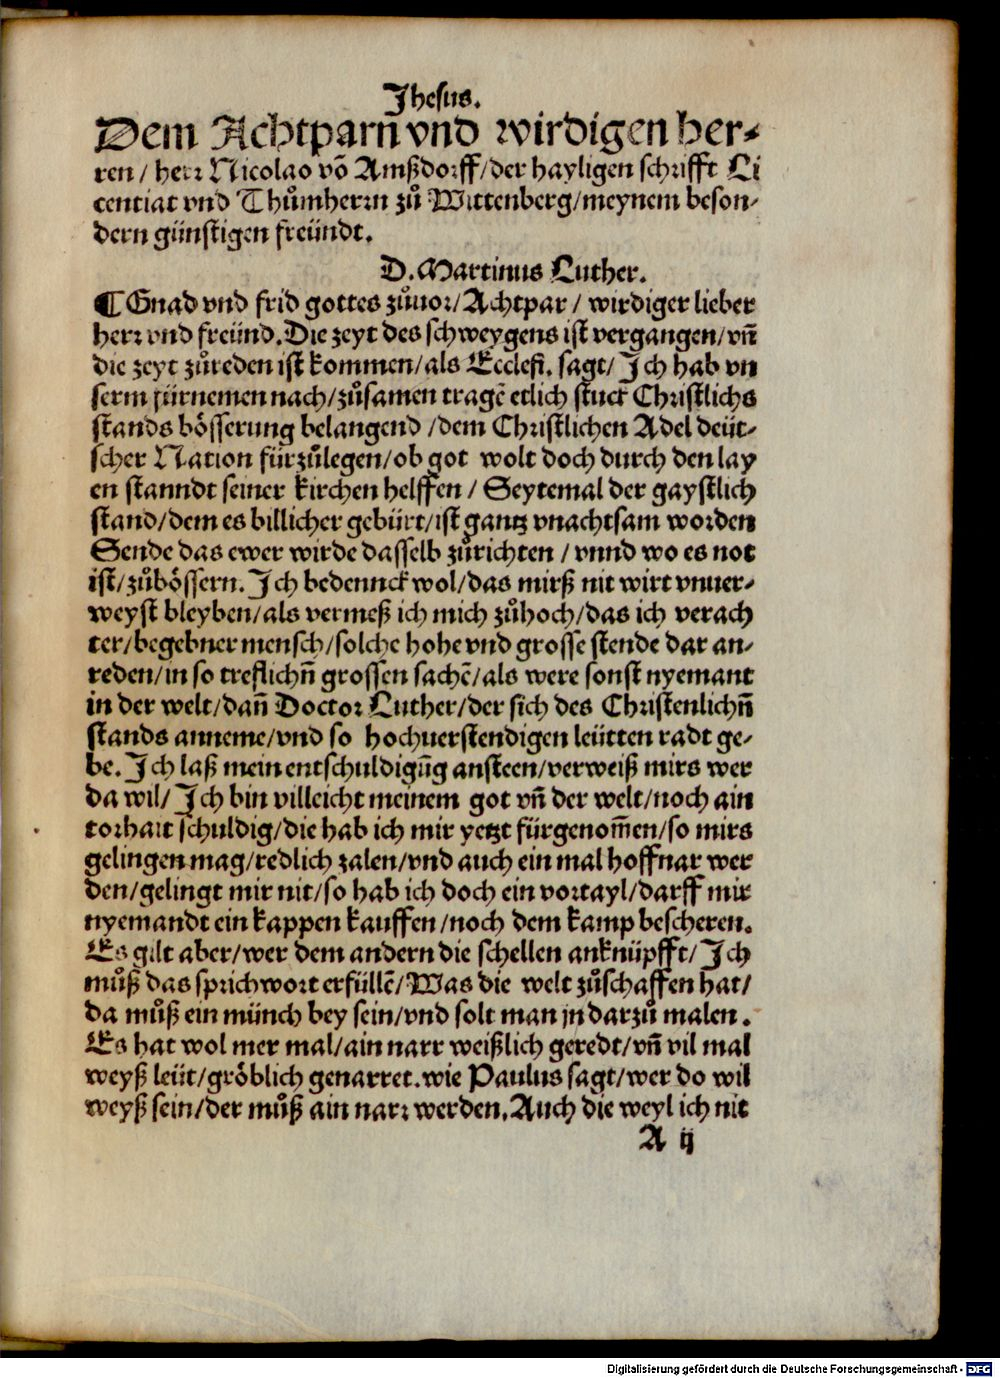 Jhesus.
Dem Achtparñ vnd wirdigen her⸗
ren / herr Nicolao võ Amßdorff/der hayligen schrifft Li
centiat vnd Thůmherrn zů Wittenberg/meynem beson⸗
dern günstigen freündt.
D.Martinus Luther.
¶Gnad vnd frid gottes zůuor/Achtpar / wirdiger lieber
herr vnd freünd.Die zeyt des schweygens ist vergangen/vñ
die zeyt zůreden ist kommen/als Ecclesi. sagt/Ich hab vn
serm fürnemen nach/zůsamen tragẽ etlich stuck Christlichs
stands bösserung belangend /dem Christlichen Adel deüt⸗
scher Nation fürzůlegen/ob got wolt doch durch den lay
en stanndt seiner kirchen helffen / Seytemal der gaystlich
stand/dem es billicher gebürt/ist gantz vnachtsam worden
Sende das ewer wirde dasselb zůrichten / vnnd wo es not
ist/zůbössern.Ich bedennck wol/das mirß nit wirt vnuer⸗
weyst bleyben/als vermeß ich mich zůhoch/das ich verach
ter/begebner mensch/solche hohe vnd grosse stende dar an⸗
reden/in so treflichñ grossen sachẽ/als were sonst nyemant
in der welt/dañ Doctor Luther/der sich des Christenlichñ
stands anneme/vnd so hochuerstendigen leütten radt ge⸗
be.Ich laß mein entschuldigũg ansteen/verweiß mirs wer
da wil/Ich bin villeicht meinem got vñ der welt/noch ain
torhait schuldig/die hab ich mir yetzt fürgenom̃en/so mirs
gelingen mag/redlich zalen/vnd auch ein mal hoffnar wer
den/gelingt mir nit/so hab ich doch ein vortayl/darff mir
nyemandt ein kappen kauffen/noch dem kamp bescheren.
Es gilt aber/wer dem andern die schellen anknüpfft/Ich
můß das sprichwort erfüllẽ/Was die welt zůschaffen hat/
da můß ein münch bey sein/vnd solt man jn darzů malen.
Es hat wol mer mal/ain narr weißlich geredt/vñ vil mal
weyß leüt/gröblich genarret.wie Paulus sagt/wer do wil
weyß sein/der můß ain narr werden.Auch die weyl ich nit
A ij
Digitalisierung gefördert durch die Deutsche Forschungsgemeinschaft - DFG